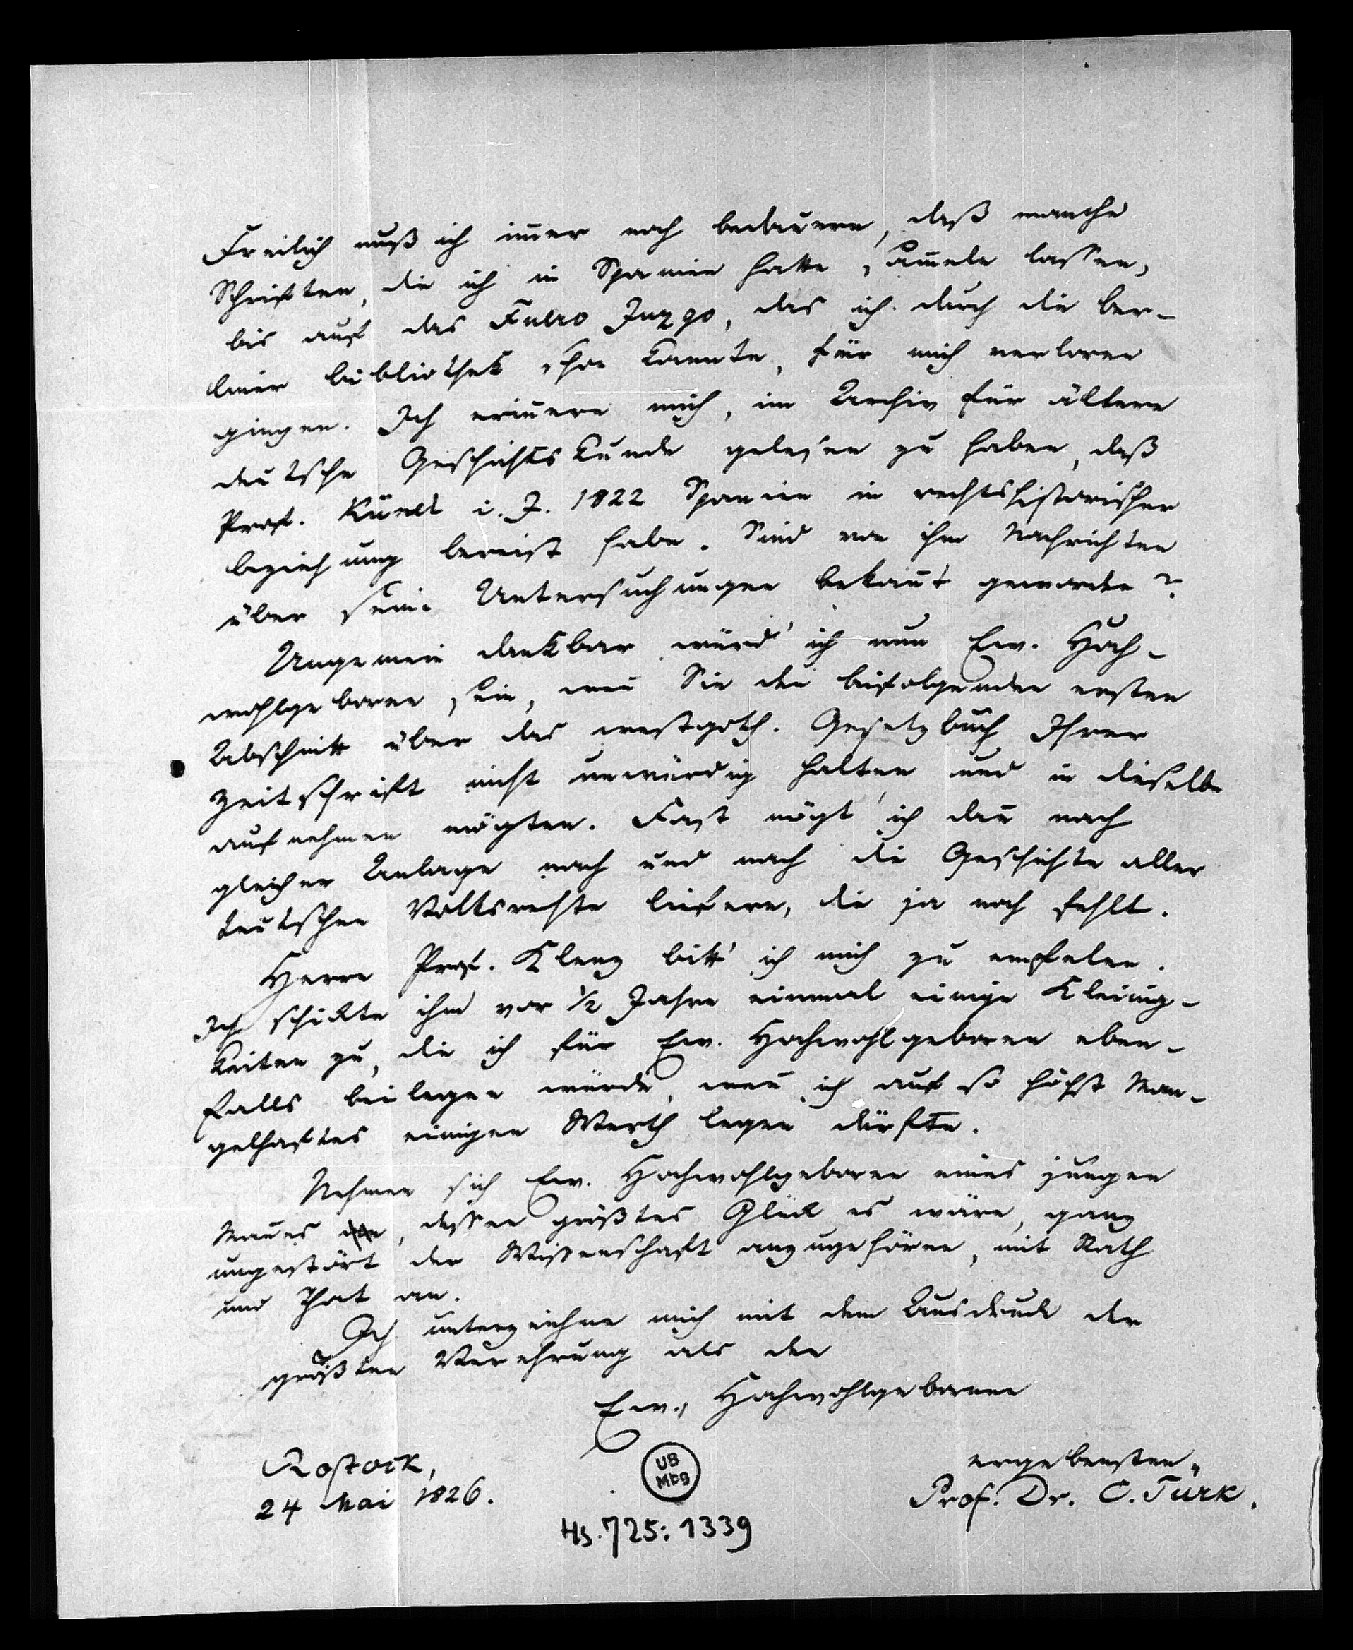 Freilich muß ich im̅er noch bedauern, daß manche
Schriften, die ich in Spanien hatte sam̅eln lassen,
bis auf das Fuero Juzgo, das ich durch die ber-
liner bibliothek schon kannte, für mich verloren
gingen. Ich erin̅ere mich, im Archiv für ältere
deutsche Geschichtskunde gelesen zu haben, daß
Prof. i. J. 1822 Spanien in rechtshistorischer
beziehung bereist habe. Sind von ihm Nachrichten
über seine Untersuchungen bekan̅t geworden?
Ungemein dankbar würd' ich nun Ew. Hoch-
wohlgeboren sein, wen̅ Sie den beifolgenden ersten
Abschnitt über das westgoth. Gesetzbuch Ihrer
Zeitschrift nicht unwürdig halten und in dieselbe
aufnehmen mögten. Fast mögt' ich dan̅ nach
gleicher Anlage nach und nach die Geschichte aller
teutschen Volksrechte liefern, die ja noch fehlt.
Herrn Prof. Klenz bitt' ich mich zu empfelen.
Ich schikte ihm vor ½ Jahre einmal einige Kleinig-
keiten zu, die ich für Ew. Hochwohlgeboren eben-
falls beilegen würde, wen̅ ich auf so höchst Man-
gelhaftes einigen Werth legen dürfte.
Nehmen sich Ew. Hochwohlgeboren eines jungen
Man̅es, dessen größtes Glück es wäre, ganz
ungestört der Wissenschaft anzugehören, mit Rath
und That an.
Ich unterzeichne mich mit dem Ausdruck der
größten Verehrung als der
Ew. Hochwohlgeboren
ergebensten
Rostock,
24 Mai 1826.
Prof. Dr. C. Türk.
UB
Mbg
Hs. 725: 1339